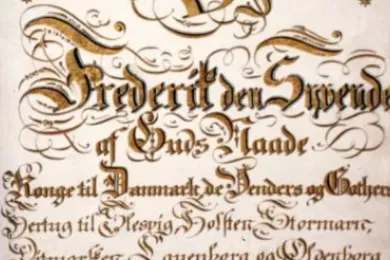 Frederik den Syvende
af Guds Naade
Konge til Danmark, de Venders og Gothers
Hertug til Slesvig, Holsten, Stormarn,
Ditmarsken, Lauenborg og Oldenborg